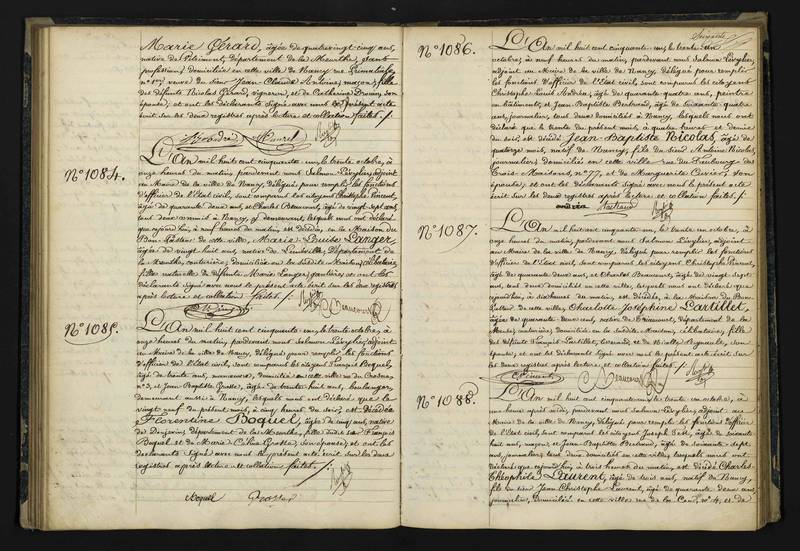 Marie Gérard, âgée de quatrevingt cinq ans,
native de département de la Meurthe, sans
profession, domiciliée en cette ville de Nancy rue
n° 107, veuve de sieur Jean Claude Antoine, maçon, fille
des défunts Nicolas Gérard, vigneron, et de Catherine Drouin, son
épouse; et ont les déclarants signé avec nous le présent acte
écrit sur les deux registres après lecture et collation faites ./.
N° 1084.
L'An mil huit cent cinquante un, le trente octobre, à
onze heures du matin, pardevant nous Salmon Lévylier, adjoint
au Maire de la ville de Nancy, délégué pour remplir les fonctions
d'officier de l'Etat civil, sont comparus les citoyens Christophe Vincent,
âgé de quarante deux ans, et Charles Beaucourt, âgé de vingt sept ans,
tous deux à Nancy, y demeurant, lesquels nous ont déclaré
que aujourd'hui, à heures du matin est décédée, en la Maison du
Bon Pasteur de cette ville, Marie Louise Langer,
âgée de vingt huit ans, native de Lunéville, Département de
la Meurthe, couturière, domiciliée en la susdite Maison, célibataire,
fille naturelle de défunte Marie Langer, et ont les
déclarants signé avec nous le présent acte écrit sur les deux registres
après lecture et collation faites ./.
Beaucourt
N° 1085.
L'An mil huit cent cinquante un, le trente octobre, à
onze heures du matin, pardevant nous Salmon Lévylier, adjoint
au Maire de la ville de Nancy, délégué pour remplir les fonctions
d'officier de l'Etat civil, sont comparus les citoyens François Boquel,
âgé de trente ans, manœuvre, domicilié en cette ville rue du
n° 3, et Jean Baptiste Grosse, âgé de trente huit ans, boulanger,
demeurant aussi à Nancy, lesquels nous ont déclaré que le
vingt neuf du présent mois, à cinq heures du soir, est décédée
Florentine Boquel, âgée de cinq ans, native
de département de la Meurthe, fille dudit sieur François
Boquel et de Marie Célina Grosse, son épouse; et ont les
déclarants signé avec nous le présent acte écrit sur les deux
registres après lecture et collation faites ./.
Boquel Grosse
N° 1086.
L'An mil huit cent cinquante un, le trente un
octobre, à neuf heures du matin, pardevant nous Salmon Lévylier,
adjoint au Maire de la ville de Nancy, délégué pour remplir
les fonctions d'officier de l'Etat civil, sont comparus les citoyens
Christophe Louis Andréa, âgé de quarante quatre ans, peintre
en bâtiments, et Jean Baptiste Bertrand, âgé de soixante quatre
ans, journalier, tous deux domiciliés à Nancy, lesquels nous ont
déclaré que le trente du présent mois, à quatre heures et demie
du soir, est décédé Jean Baptiste Nicolas, âgé de
quatorze mois, natif de Nancy, fils du sieur Antoine Nicolas,
journalier, domicilié en cette ville rue du Faubourg des
Trois Maisons, n° 77, et de Marguerite Cuvier, son
épouse; et ont les déclarants signé avec nous le présent acte
écrit sur les deux registres après lecture et collation faites ./.
andréa Bertrand
N° 1087.
L'An mil huit cent cinquante un, le trente un octobre, à
onze heures du matin, pardevant nous Salmon Lévylier, adjoint
au Maire de la ville de Nancy, délégué pour remplir les fonctions
d'officier de l'Etat civil, sont comparus les citoyens Christophe Vincent,
âgé de quarante deux ans, et Charles Beaucourt, âgé de vingt sept
ans, tous deux domiciliés en cette ville, lesquels nous ont déclaré que
aujourd'hui, à six heures du matin, est décédée, à la Maison du Bon
Pasteur de cette ville, Charlotte Joséphine Lartillet,
âgée de quarante deux ans, native de Département de la
Meuse, couturière, domiciliée en la susdite Maison, célibataire, fille
des défunts François Lartillet, et de Nicolle son
épouse; et ont les déclarants signé avec nous le présent acte écrit sur
les deux registres après lecture et collation faites ./.
Vincent Beaucourt
N° 1088.
L'An mil huit cent cinquante un, le trente un octobre, à
une heure après midi, pardevant nous Salmon Lévylier, adjoint au
Maire de la ville de Nancy, délégué pour remplir les fonctions d'officier
de l'Etat civil, sont comparus les citoyens Joseph âgé de
huit ans, maçon, et Jean Baptiste Bertrand, âgé de soixante
ans, journalier, tous deux domiciliés en cette ville, lesquels nous ont
déclaré que aujourd'hui, à trois heures du matin, est décédé Charles
Théophile Laurent, âgé de trois ans, natif de Nancy,
fils du sieur Jean Christophe Laurent, âgé de quarante deux ans,
journalier, domicilié en cette ville rue de n° 4, et de